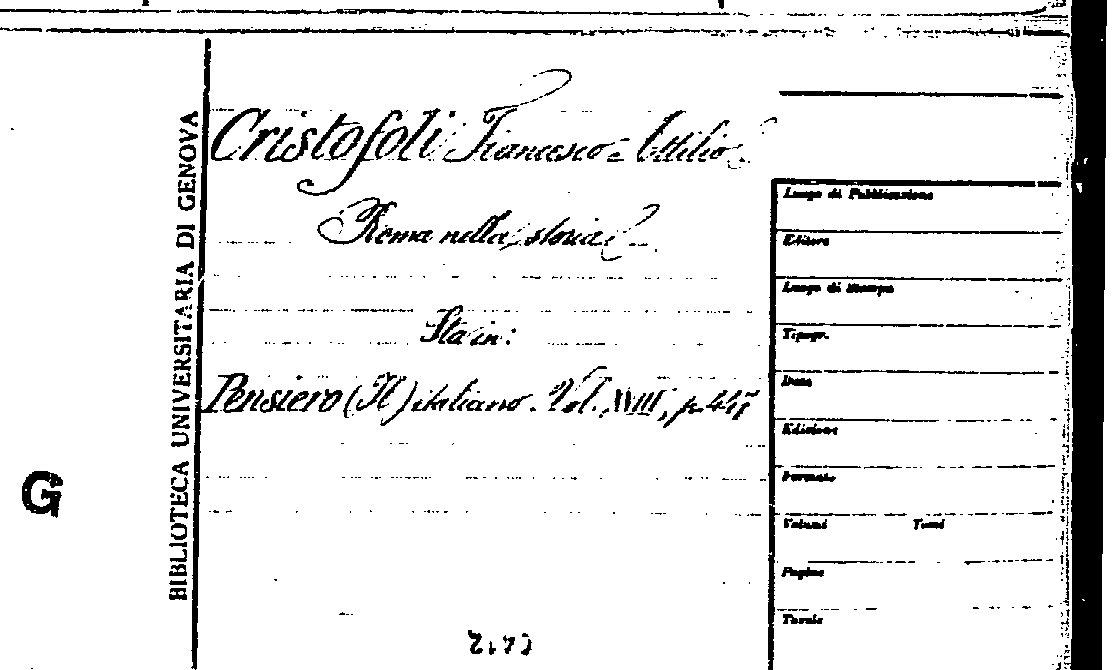 BIBLIOTECA UNIVERSITARIA DI GENOVA
Cristofoli Francesco = Attilio
Roma nella storia
Sta in:
Pensiero (Il) italiano. Vol. XVIII, p.
G
Luogo di Pubblicazione
Editore
Luogo di Stampa
Tipogr.
Data
Edizione
Formato
Volumi Tomi
Pagine
Tavole